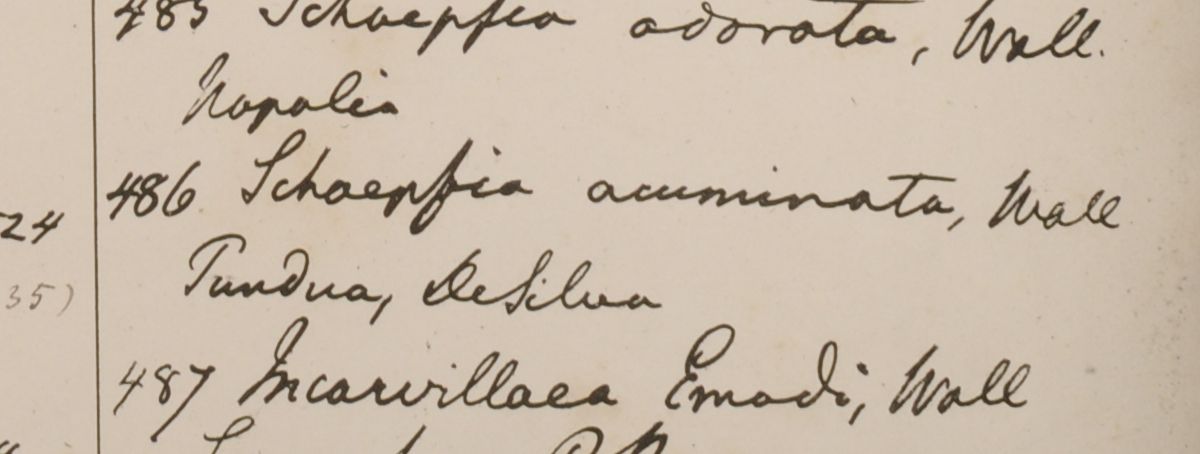 485 Schoepfia odorata, Wall.
Napalia
486 Schoepfia acuminata, Wall
24
Pundua, DeSilva
35)
487 Incarvillaea Emodi, Wall